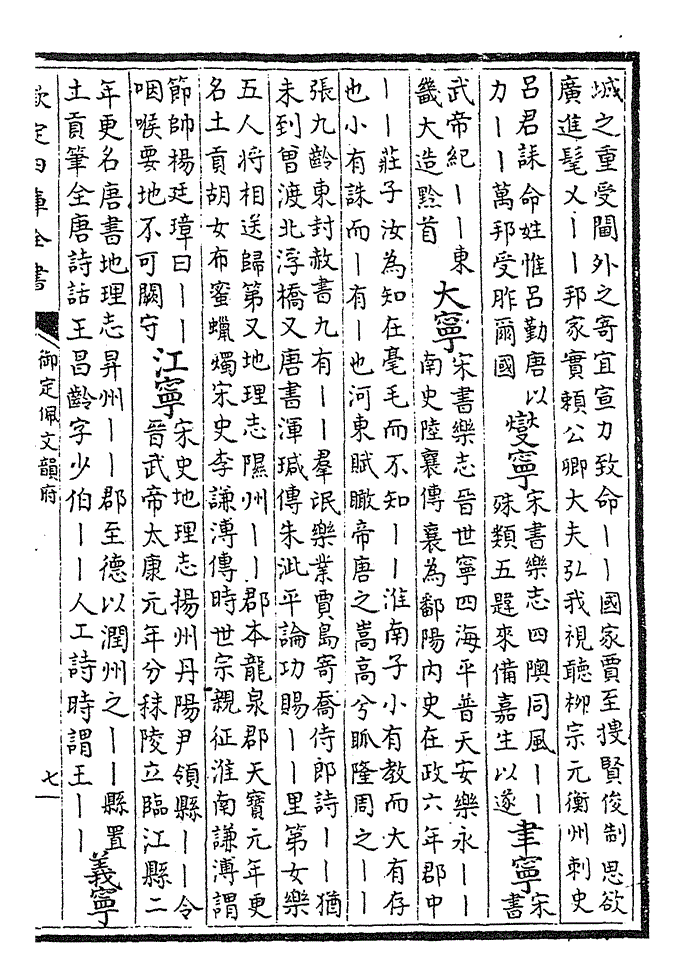 城之重受閫外之寄宜宣力致命丨丨國家賈至搜賢俊制思欲
廣進髦乂丨丨邦家實賴公卿大夫弘我視聽柳宗元衡州刺史
呂君誄命姓惟呂勤唐以
力丨丨萬邦受胙爾國
燮寧
宋書樂志四隩同風丨丨
殊類五韙來備嘉生以遂
聿寧
宋
書
武帝紀丨丨東
畿大造黔首
大寧
宋書樂志晉世寧四海平普天安樂永丨丨
南史陸襄傳襄為鄱陽内史在政六年郡中
丨丨莊子汝為知在毫毛而不知丨丨淮南子小有教而大有存
也小有誅而丨有丨也河東賦瞰帝唐之嵩高兮眽隆周之丨丨
張九齡東封赦書九有丨丨羣氓樂業賈島寄喬侍郎詩丨丨猶
未到曾渡北浮橋又唐書渾瑊傳朱泚平論功賜丨丨里第女樂
五人將相送歸第又地理志隰州丨丨郡本龍泉郡天寶元年更
名土貢胡女布蜜蠟燭宋史李謙溥傳時世宗親征淮南謙溥謂
節帥楊廷璋曰丨丨
咽喉要地不可闕守
江寧
宋史地理志揚州丹陽尹領縣丨丨令
晉武帝太康元年分秣陵立臨江縣二
年更名唐書地理志昇州丨丨郡至德以潤州之丨丨縣置
土貢筆全唐詩話王昌齡字少伯丨丨人工詩時謂王丨丨
義寧
欽定四庫全書
御定佩文韻府
七